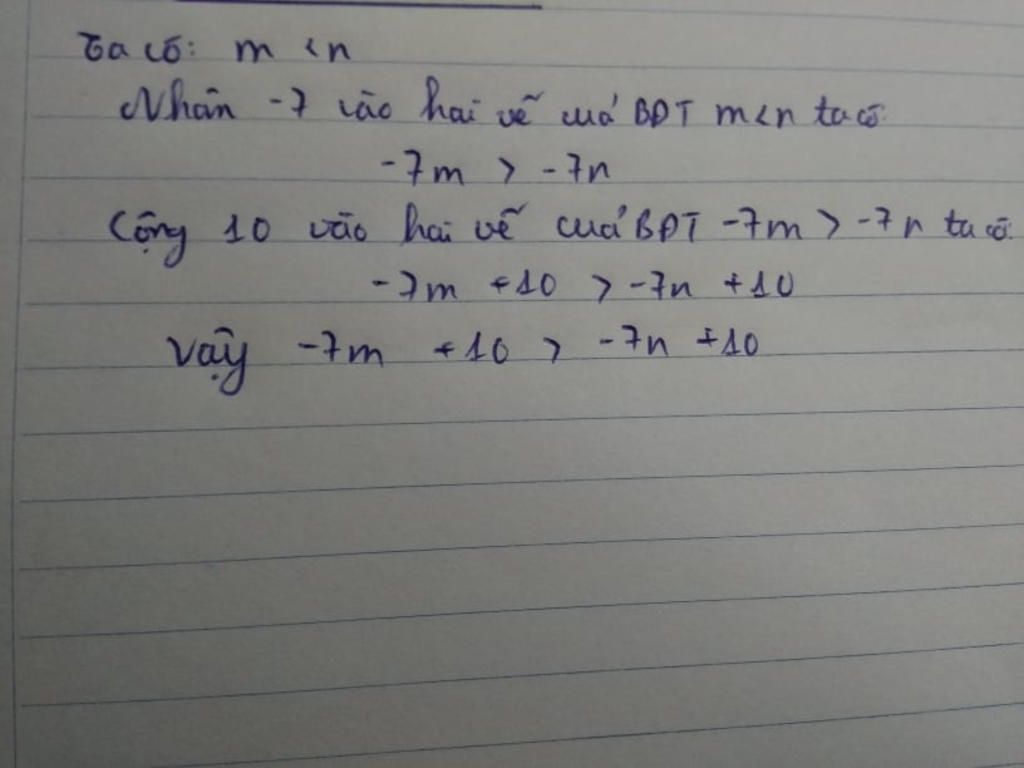 Ta có: m < n
Nhân -7 vào hai vế của BĐT m<n ta có:
-7m > -7n
Cộng 10 vào hai vế của BĐT -7m > -7n ta có:
-7m +10 > -7n +10
Vậy -7m +10 > -7n +10